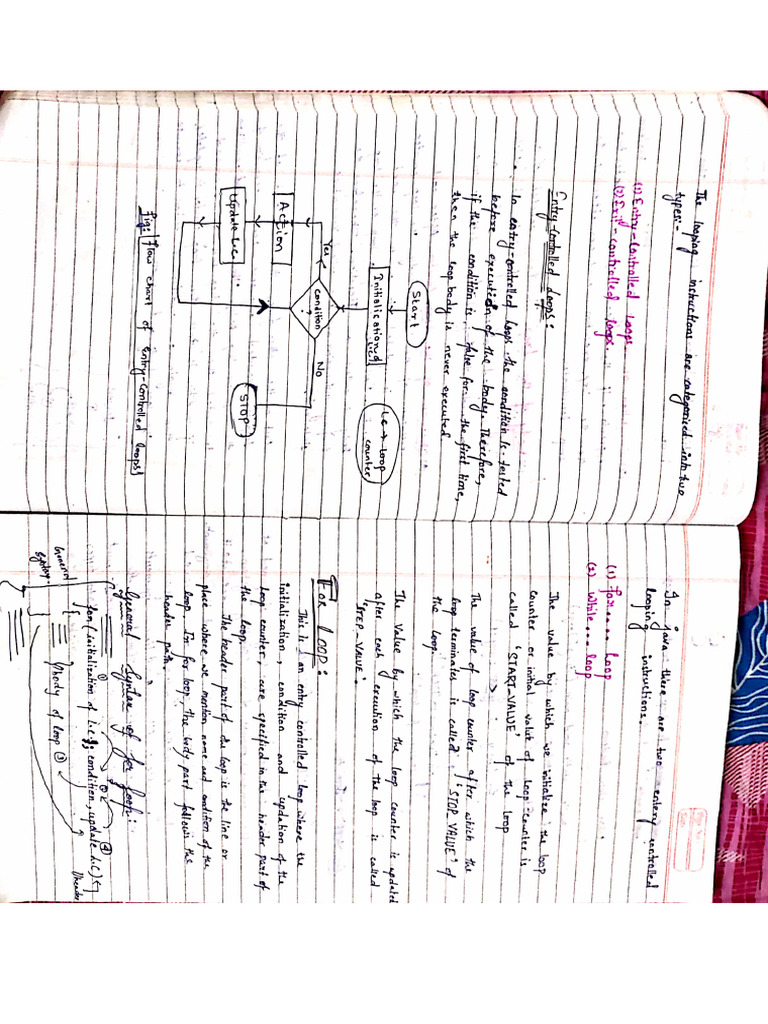 The looping instructions are categorised into two
types:-
(1) Entry-controlled loops
(2) Exit-controlled loops.
Entry-controlled loops:
In entry-controlled loops the condition is tested
before execution of the body. Therefore,
if the condition is false for the first time,
then the loop body is never executed
Start
Initialication of
L.C.
LC → Loop
counter
condition
?
Yes
No
Action
Update L.C.
STOP
Fig: flow chart of entry-controlled loops
In java there are two entery controlled
looping instructions.
(1) for.... loop
(2) While... loop
The value by which we initialize the loop
counter or initial value of loop-counter is
called 'START-VALUE' of the loop
The value of loop counter after which the
loop terminates is called 'STOP VALUE' of
the loop.
The value by which the loop counter is updated
after each execution of the loop is called
'STEP-VALUE'.
FOR LOOP:
This is an entry controlled loop where the
initialization, condition and updation of the
loop counter, are specified in the header part of
the loop.
The header part of the loop is the line or
place where we mention name and condition of the
loop. In for loop, the body part follows the
header path.
General Syntax of for loop:
for (initialization of L.C; condition, update L.C)
① ② ④
body of loop ③
header
General
Syntax